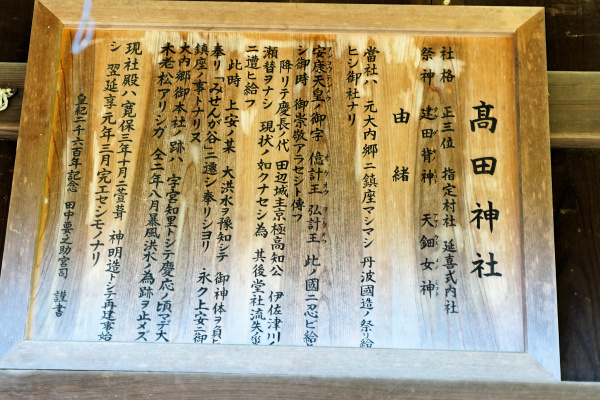 髙田神社
社格　正三位　指定村社　延喜式内社
祭神　建田背神　天鈿女神
由緒
當社ハ　元大内郷ニ鎮座マシマシ　丹波國造ノ祭リ給
ヒシ御社ナリ
安康天皇ノ御宇　億計王　弘計王　此ノ國ニ忍ビ給ヒ
シ御時　御崇敬アラセシト傳フ
降リテ慶長ノ代　田辺城主京極高知公　伊佐津川ノ
瀬替ヲナシ　現状ノ如クナセシ為　其後堂社流失ノ
ニ遭ヒ給フ
此時　上安ノ某　大洪水ヲ豫知シテ　御神体ヲ負ヒ
奉リ「みせんが谷」ニ遷シ奉リシヨリ　永ク上安ニ御
鎮座ノ事トナリヌ
大内郷御本社ノ跡ハ　字宮知里トシテ慶応ノ頃マデ大
木老松アリシガ　仝二年八月暴風洪水ノ為跡ヲ止メズ
現社殿ハ寛保二年十月ニ萱葺　神明造トシテ再建事始
シ　翌延享元年三月完工セシモノナリ
皇紀二千六百年記念　田中要之助宮司　謹書